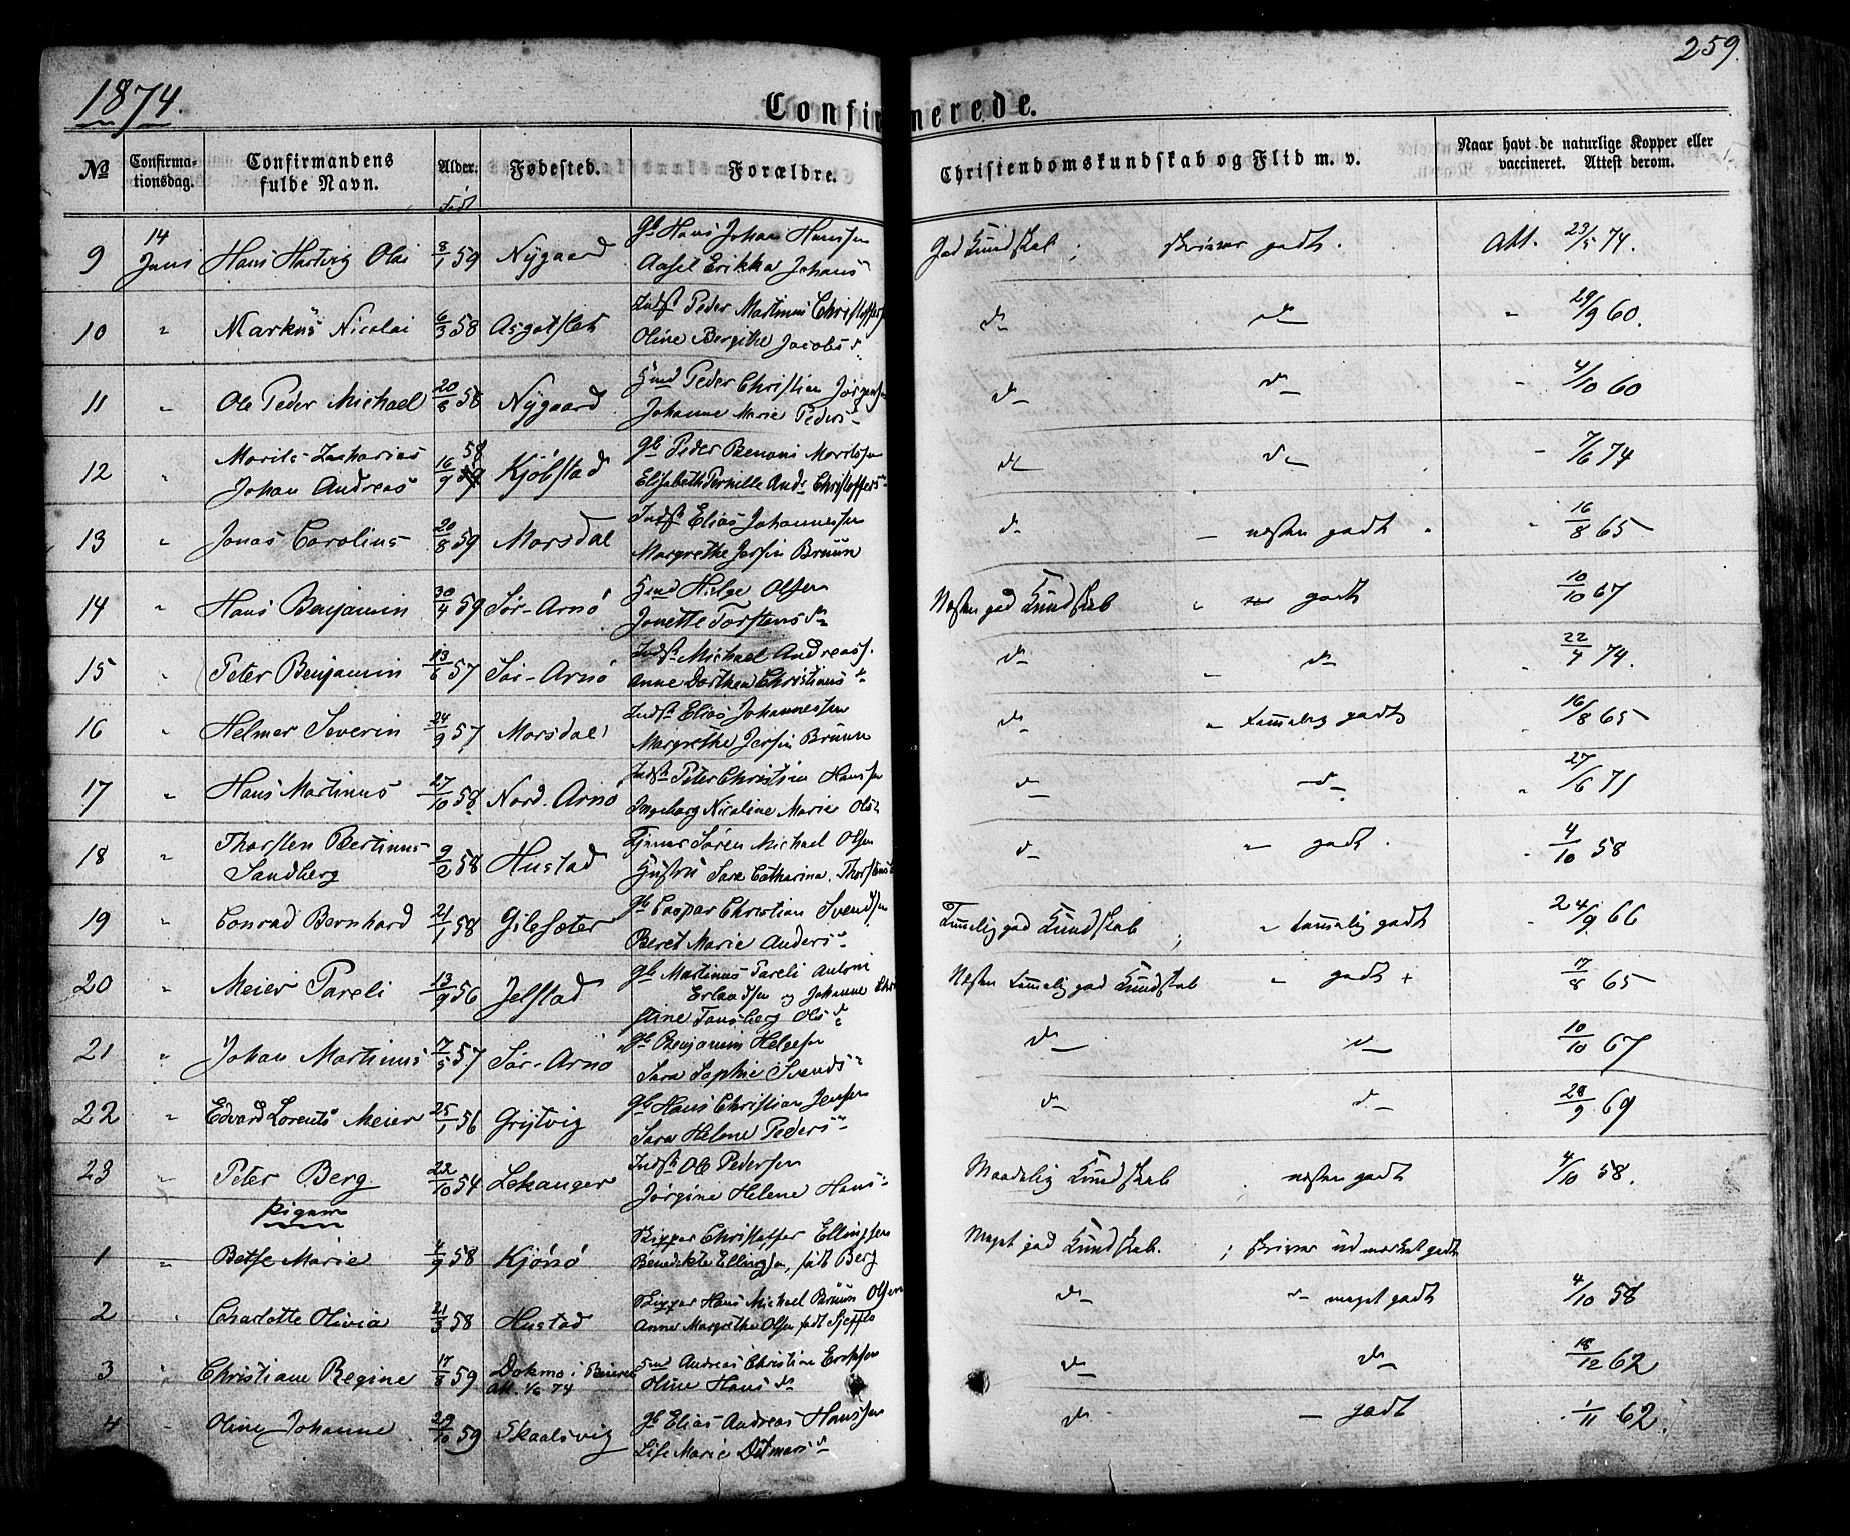 1874.
259.
Confirmerede.
No
Confirma-
tionsdag.
Confirmandens
fulde Navn.
Alder.
født
Fødested.
Forældre.
Christendomskundskab og Flid m. v.
Naar havt de naturlige Kopper eller
vaccineret. Attest derom.
9 14 Juni Hans Hartvig Olai 8/1 59 Nygaard Gb Hans Johan Hanssen
Aasel Erikka Johans God Kundskab ; skriver godt. Att. 23/5 74.
10 " Markus Nicolai 6/3 58 Asgotslet Indst Peder Martinus Christoffersen
Oline Bergithe Jacobsd d d " 29/9 60.
11 " Ole Peder Michael 20/8 58 Nygaard Gmd Peder Christian Jørgensen
Johanne Marie Pedersd d d 4/10 60
12 " Morits Zacharias
Johan Andreas 16/9 58 Kjøbstad Gb Peder Benoni Moritssen
Elisabeth Pernille Andr Christoffersd d d 7/6 74
13 " Jonas Carolius 20/8 59 Morsdal Indst Elias Johannessen
Margrethe Jersin Bruun d næsten godt 16/8 65
14 " Hans Benjamin 30/4 59 Sør-Arnø Gmd Helge Olsen
Jonette Torstensd Næsten god Kundskab " godt 10/10 67
15 " Peter Benjamin 13/6 57 Sør-Arnø Indst Michael Andreass.
Anne Dorthea Christiansd d d 22/4 74.
16 " Helmer Severin 24/9 57 Morsdal Indst Elias Johannessen
Margrethe Jersin Bruun d " temmelig godt 16/8 65
17 " Hans Martinus 27/10 58 Nord-Arnø Indst Peter Christian Hanssen
Ingeborg Nicoline Marie Olsd d d " 27/6 71
18 " Thorsten Bertinus
Sandberg 9/2 58 Hustad Tjener Søren Michael Olsen
Hustru Sara Catharina Thorstensd d " godt. 4/10 58
19 " Conrad Bernhard 21/1 58 Gilesæter Gb Caspar Christian Svendsen
Beret Marie Andersd Temmelig god Kundskab ; " temmelig godt 24/9 66
20 " Meier Pareli 13/9 56 Jelstad Gb Martinus Pareli Antoni
Erlandsen og Johanne Chri
stine Tønsberg Olsd Næsten temmelig god Kundskab " godt + 17/8 65
21 " Johan Martinus 17/5 57 Sør-Arnø Gb Benjamin Helgesen
Sara Sophie Svendsd d d 10/10 67
22 " Edvard Lorents Meier 25/1 56 Grytvig Gb Hans Christian Jensen
Sara Helene Pedersd d d 28/9 69
23 " Peter Berg 22/10 54 Lekanger Indst Ole Pedersen
Jørgine Helene Hansd Maadelig Kundskab næsten godt 4/10 58.
Pigerne
1 " Betse Marie 4/9 58 Kjønø Skipper Christoffer Ellingsen
Benedikte Ellingsen, født Berg Meget god Kundskab. ; skriver udmærket godt
2 " Charlotte Olivia 21/3 58 Hustad Skipper Hans Michael Bruun Olsen
Anne Margrethe Olsen født d d meget godt 4/10 58
3 " Christiane Regine 17/8 59 Dokmo i Beieren
Att. 1/6 74 Gmd Andreas Christian Eriksen
Oline Hansd d d 18/12 62
4 " Oline Johanne 29/10 59 Skaalsvig Gb Elias Andreas Hanssen
Lise Marie Ditmarsd d godt 1/11 62.